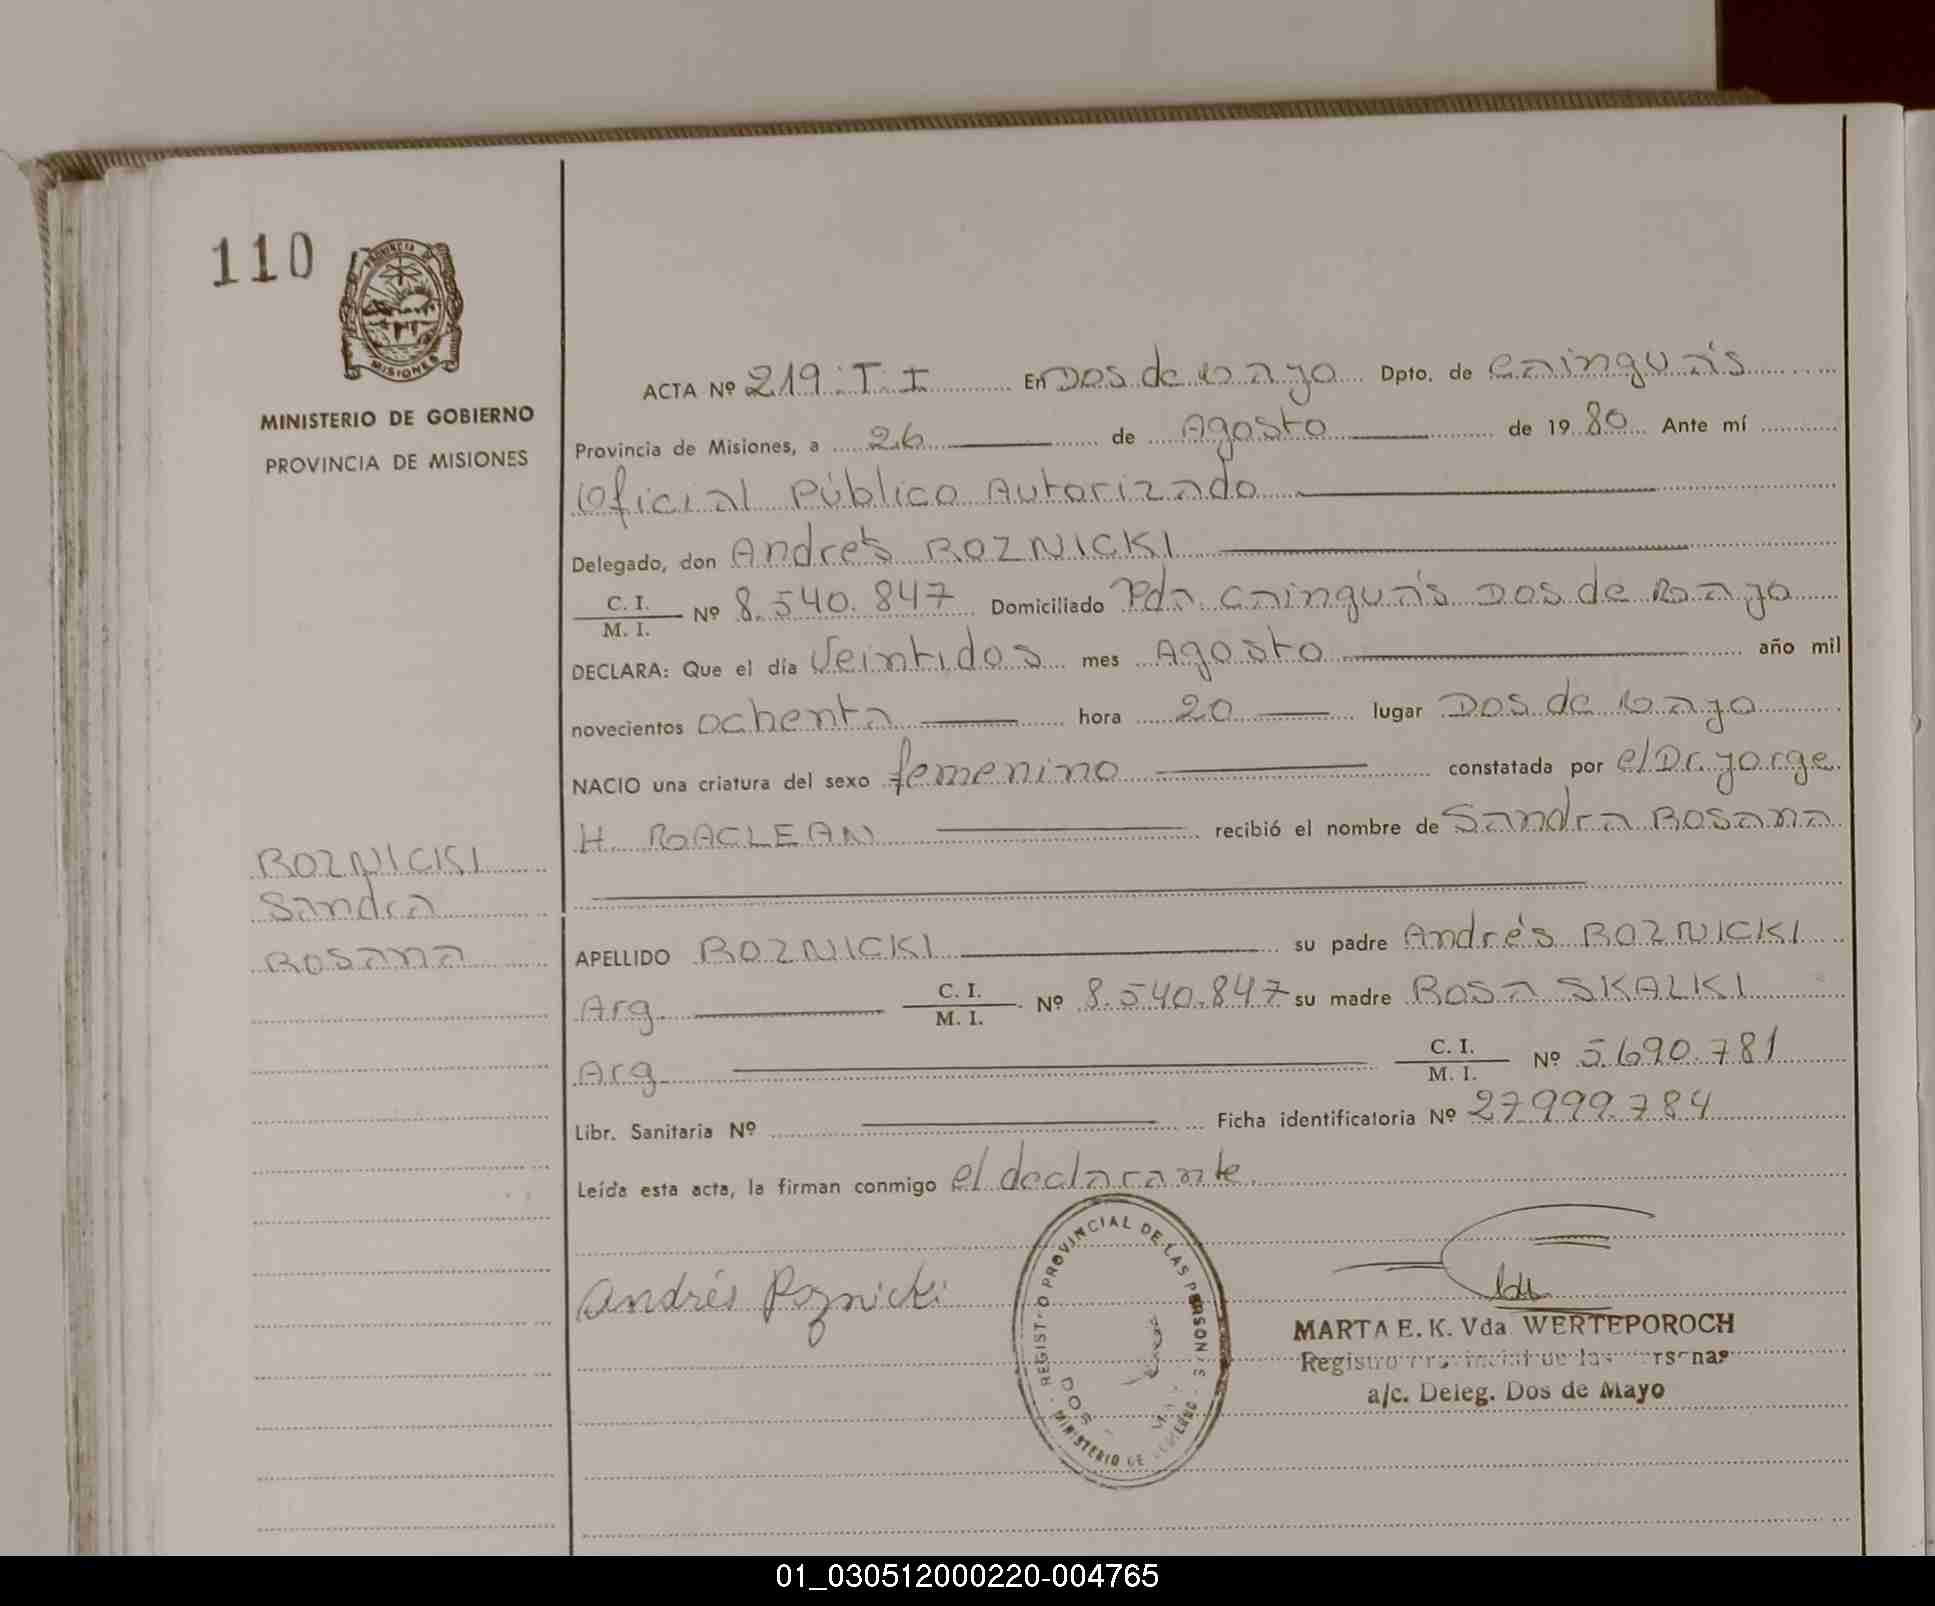 110
PROVINCIA DE
MISIONES
MINISTERIO DE GOBIERNO
PROVINCIA DE MISIONES
ACTA Nº 219. T. I En Dos de Mayo Dpto. de Cainguás
Provincia de Misiones, a 26 de Agosto de 1980 Ante mí
Oficial Público Autorizado
Delegado, don Andrés ROZNICKI
C. I. / M. I. Nº 8.540.847 Domiciliado Pda Cainguás Dos de Mayo
DECLARA: Que el día Veintidos mes Agosto año mil
novecientos ochenta hora 20 lugar Dos de Mayo
NACIO una criatura del sexo femenino constatada por el Dr. Jorge
H. MACLEAN recibió el nombre de Sandra Rosana
ROZNICKI
Sandra
Rosana
APELLIDO ROZNICKI su padre Andrés ROZNICKI
Arg. C. I. / M. I. Nº 8.540.847 su madre Rosa SKALKI
Arg. C. I. / M. I. Nº 5.690.781
Libr. Sanitaria Nº Ficha identificatoria Nº 27.999.784
Leída esta acta, la firman conmigo el declarante.
Andrés Roznicki
REGISTRO PROVINCIAL DE LAS PERSONAS
DOS
MINISTERIO DE GOBIERNO
MARTA E. K. Vda. WERTEPOROCH
Registro Provincial de las Personas
a/c. Deleg. Dos de Mayo
01_030512000220-004765